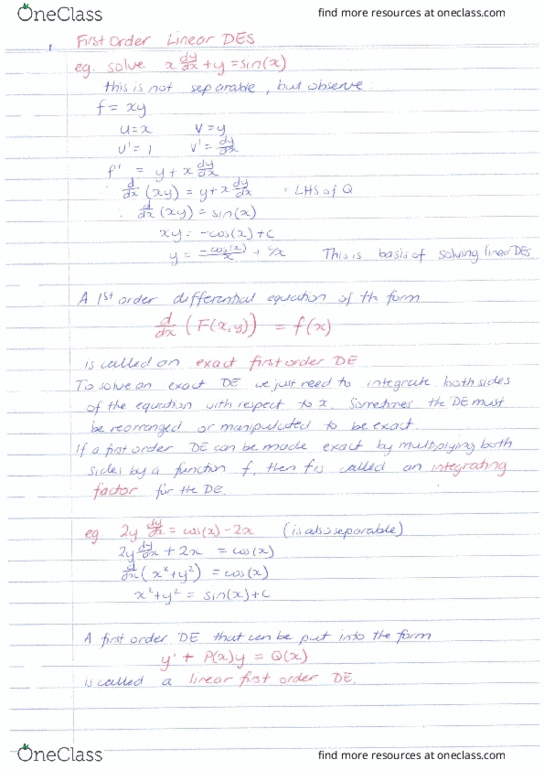 OneClass
find more resources at oneclass.com
First Order Linear DEs
eg. solve x dy/dx + y = sin(x)
this is not separable, but observe
f = xy
u = x v = y
u' = 1 v' = dy/dx
f' = y + x dy/dx
d/dx (xy) = y + x dy/dx = LHS of Q
d/dx (xy) = sin(x)
xy = -cos(x) + c
y = -cos(x)/x + c/x This is basis of solving linear DEs
A 1st order differential equation of th form
d/dx (F(x,y)) = f(x)
is called an exact first order DE
To solve an exact DE we just need to integrate both sides
of the equation with respect to x. Sometimes the DE must
be rearranged or manipulated to be exact.
If a first order DE can be made exact by multiplying both
sides by a function f, then f is called an integrating
factor for the DE.
eg. 2y dy/dx = cos(x) - 2x (is also separable)
2y dy/dx + 2x = cos(x)
d/dx (x² + y²) = cos(x)
x² + y² = sin(x) + c
A first order DE that can be put into the form
y' + P(x)y = Q(x)
is called a linear first order DE.
OneClass
find more resources at oneclass.com